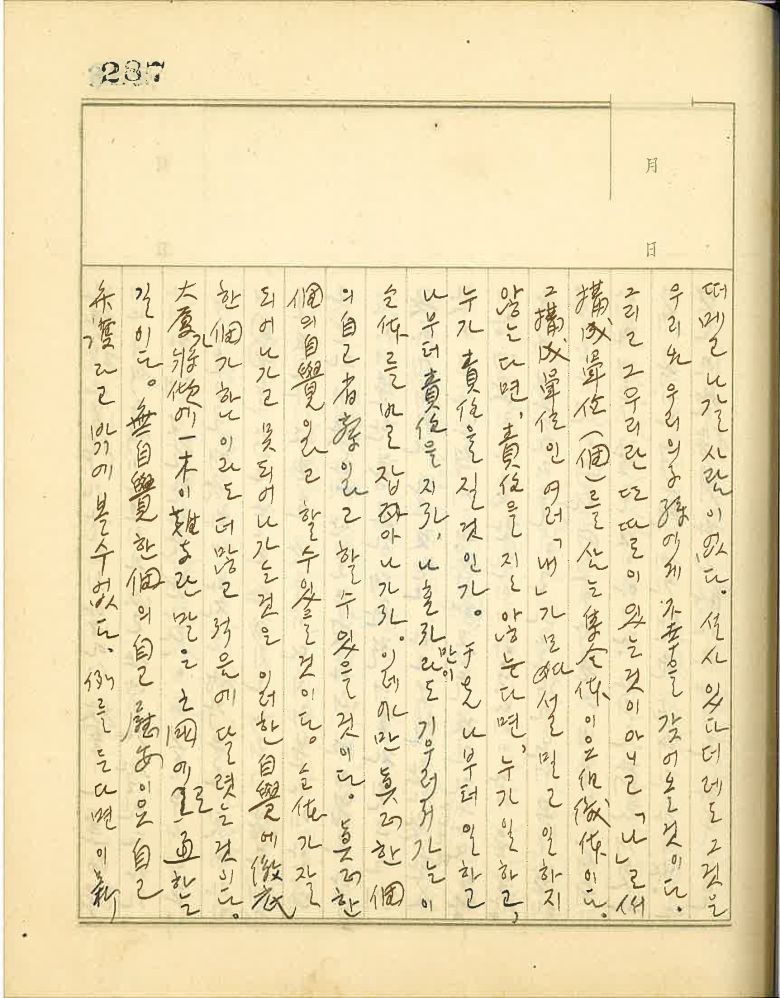 237
月
日
떠메고 나갈 사람이 없다. 설사 있다 더래도 그것은
우리는 우리의 子孫에게 不幸을 갖어오는 것이다.
그리고 그 우리란 또 따로이 있는 것이 아니고 「나」로써
構成單位(個)를 삼는 集合体이오 組織体이다.
그 構成單位인 여러 「내」가 모여서 설밀고 일하지
않는다면, 責任을 지지 않는다면, 누가 일하고,
누가 責任을 질것인가. 于先 나부터 일하고
나부터 責任을 지자, 나 혼자만이라도 기우러저가는 이
全体를 바로 잡아 나가자. 이레야만 眞正한 個
의 自己省察이라고 할 수 있을 것이다. 眞正한
個의 自覺이라고 할 수 있을 것이다. 全体가 잘
되어나가고 못되어나가는 것은 이러한 自覺에 徹底
한 個가 하나이라도 더 많고 적음에 달렷는 것이다.
大厦가 將傾에 一木이 難支란 말은 亡國에로 通하는
길이다. 無自覺한 個의 自己慰安이오 自己
弁護라고 밖에 볼 수 없다. 例를 든다면 이 新